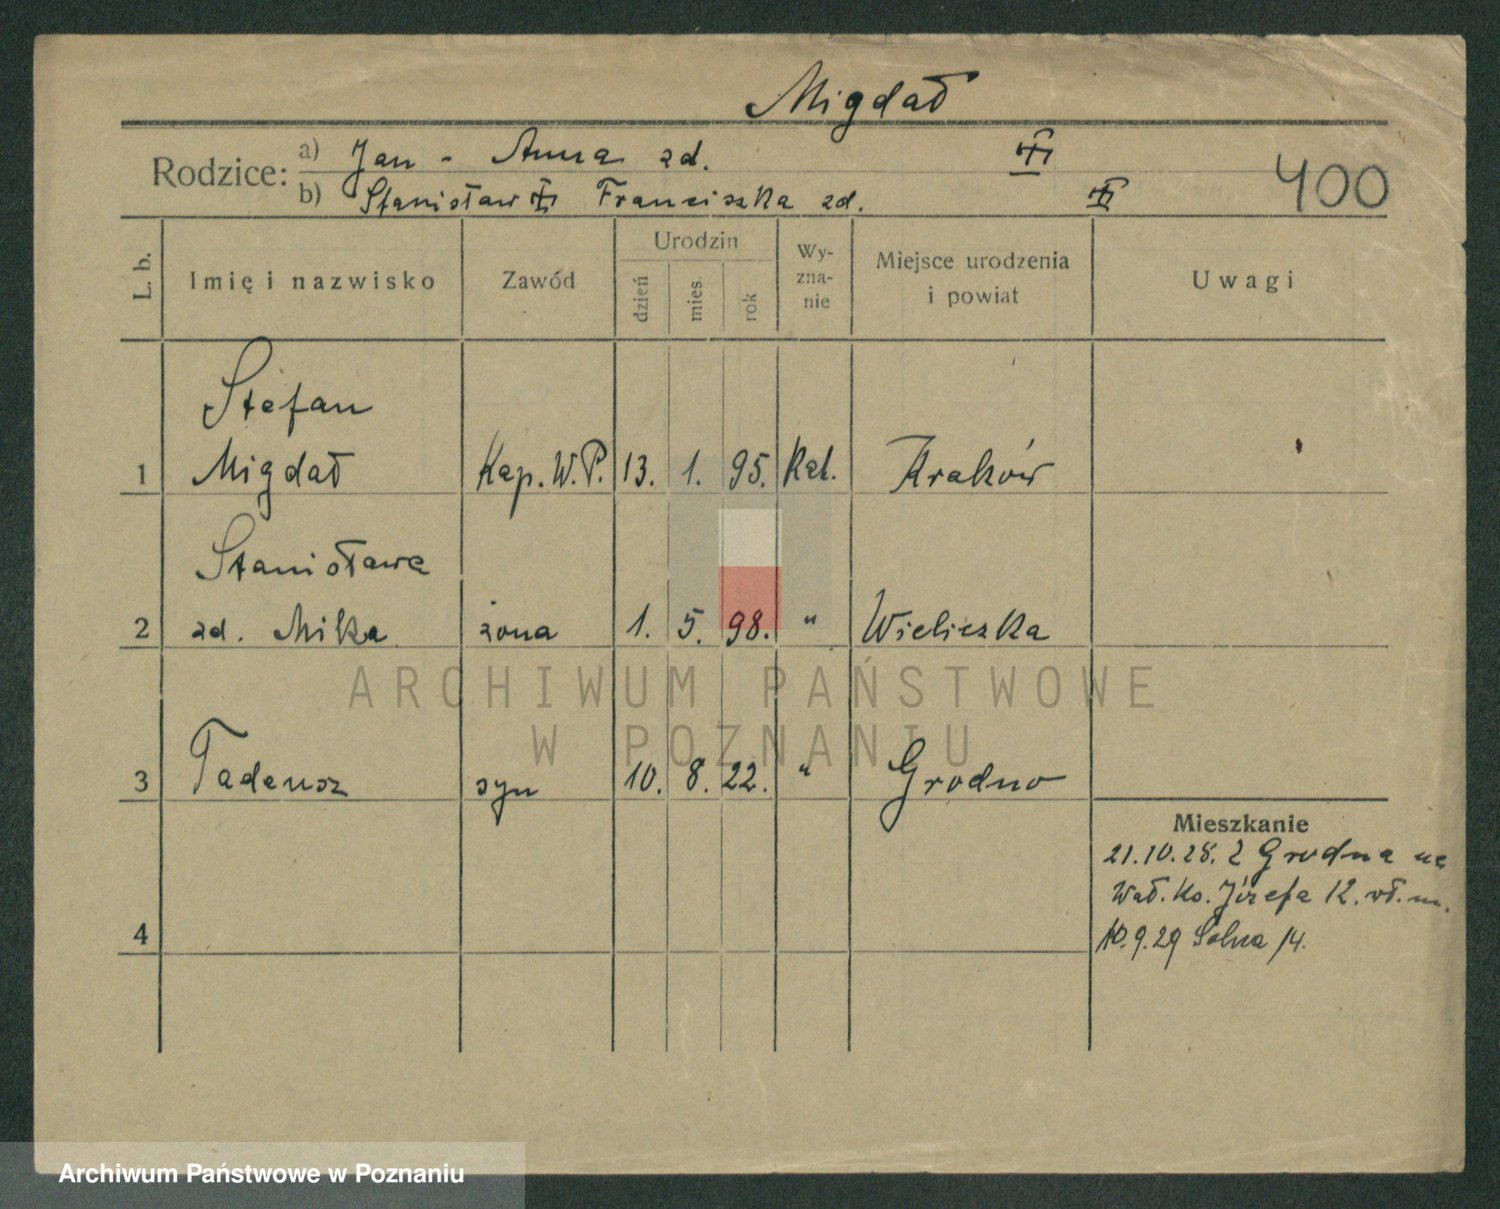 Migdał
Rodzice: a) Jan - Anna zd.
400
b) Stanisław Franciszka zd.
L. b.
Imię i nazwisko
Zawód
Urodzin
dzień
mies.
rok
Wy-
zna-
nie
Miejsce urodzenia
i powiat
Uwagi
Stefan
1 Migdał Kap. W.P. 13. 1. 95. Kat. Kraków
Stanisława
2 zd. Mika żona 1. 5. 98. " Wieliczka
3 Tadeusz syn 10. 8. 22. " Grodno
4
Mieszkanie
21.10.28. Z Grodna na
Wał. Ks. Józefa 12. wł. m.
10.9.29 Solna 14.
ARCHIWUM PAŃSTWOWE
W POZNANIU
Archiwum Państwowe w Poznaniu